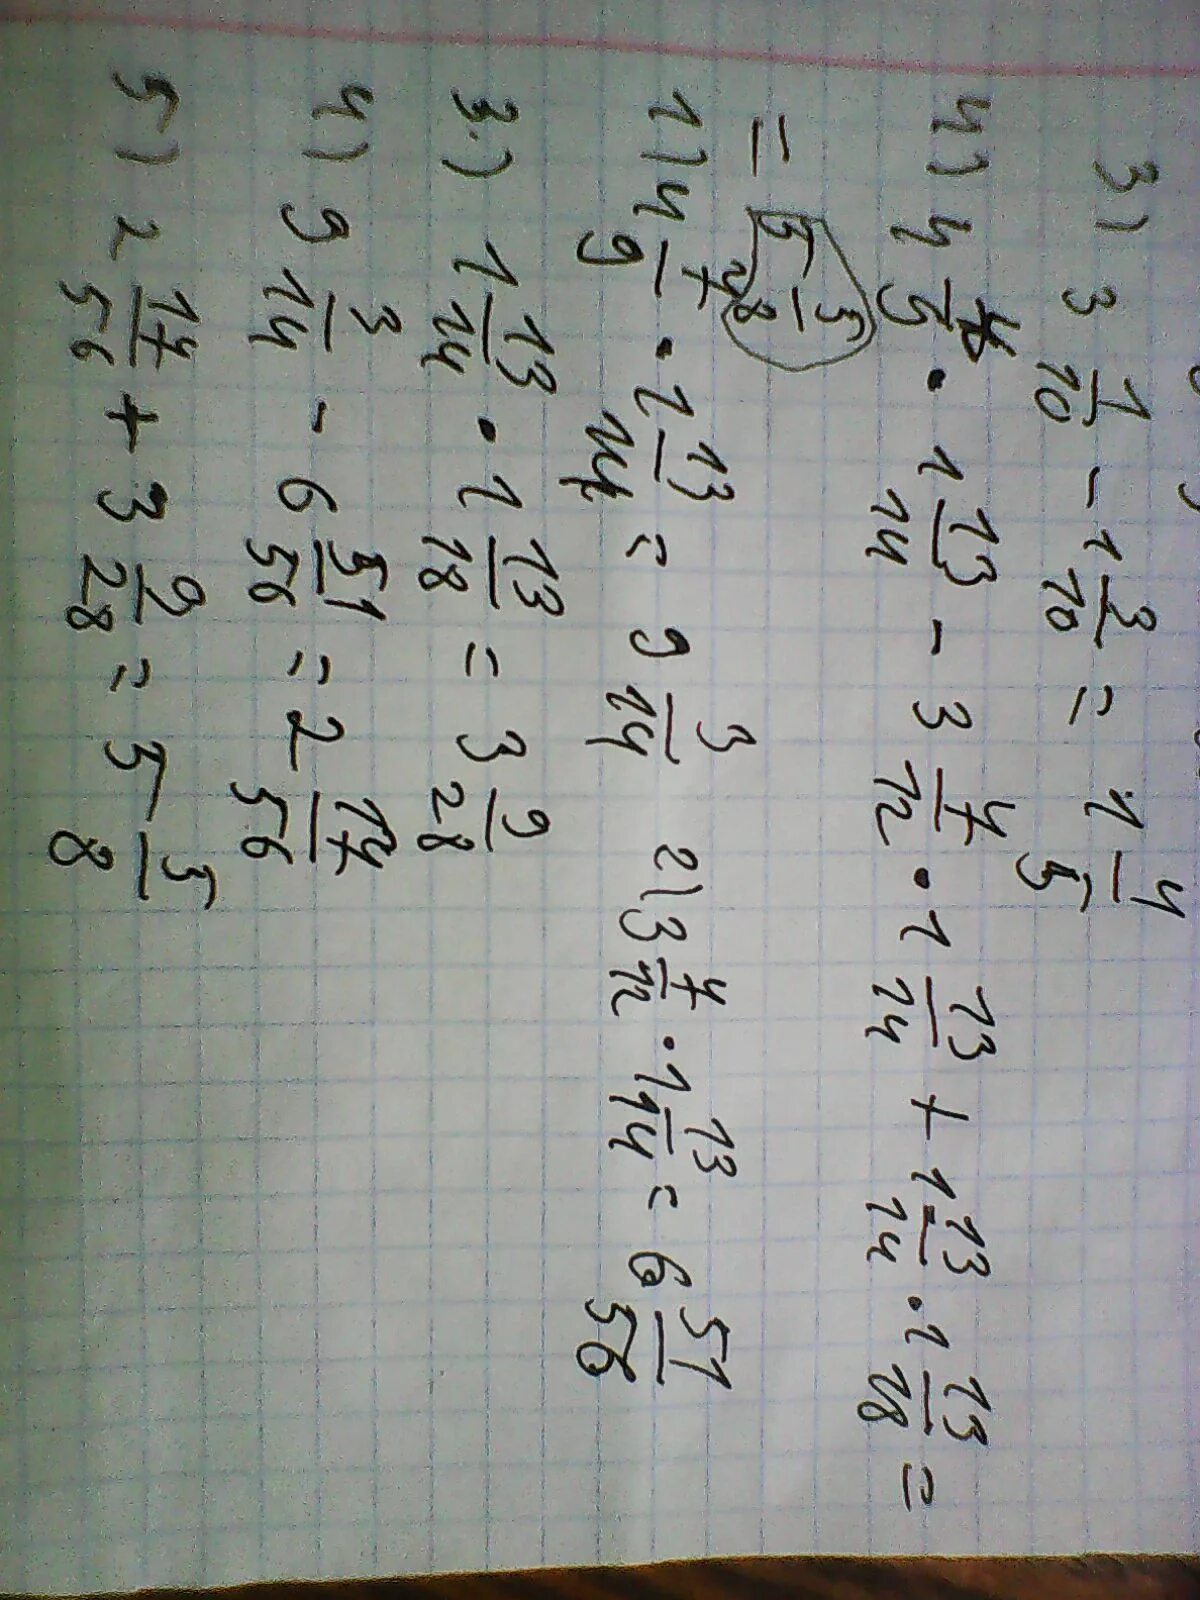 3) 3 1/10 - 1 3/10 = 1 4/5
4) 4 4/5 · 1 13/14 - 3 7/12 · 1 13/14 + 1 13/14 · 1 13/18 =
= 5 5/8
1) 4 7/9 · 1 13/14 = 9 3/14 2) 3 7/12 · 1 13/14 = 6 51/56
3.) 1 13/14 · 1 13/18 = 3 9/28
4) 9 3/14 - 6 51/56 = 2 17/56
5) 2 17/56 + 3 9/28 = 5 5/8